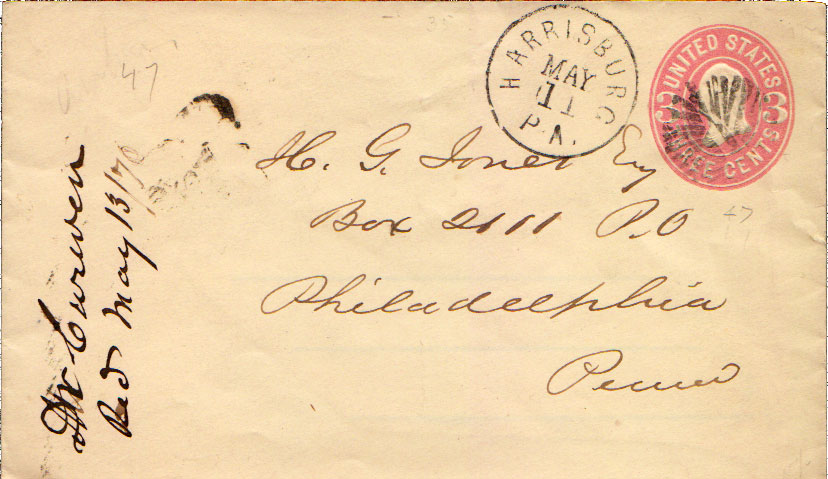 HARRISBURG
MAY
11
PA.
UNITED STATES
3 3
THREE CENTS
47
H. G. Jones Esq
Box 2111 P.O
Philadelphia
Penna
47
Dr Curwen
Recd May 13/70